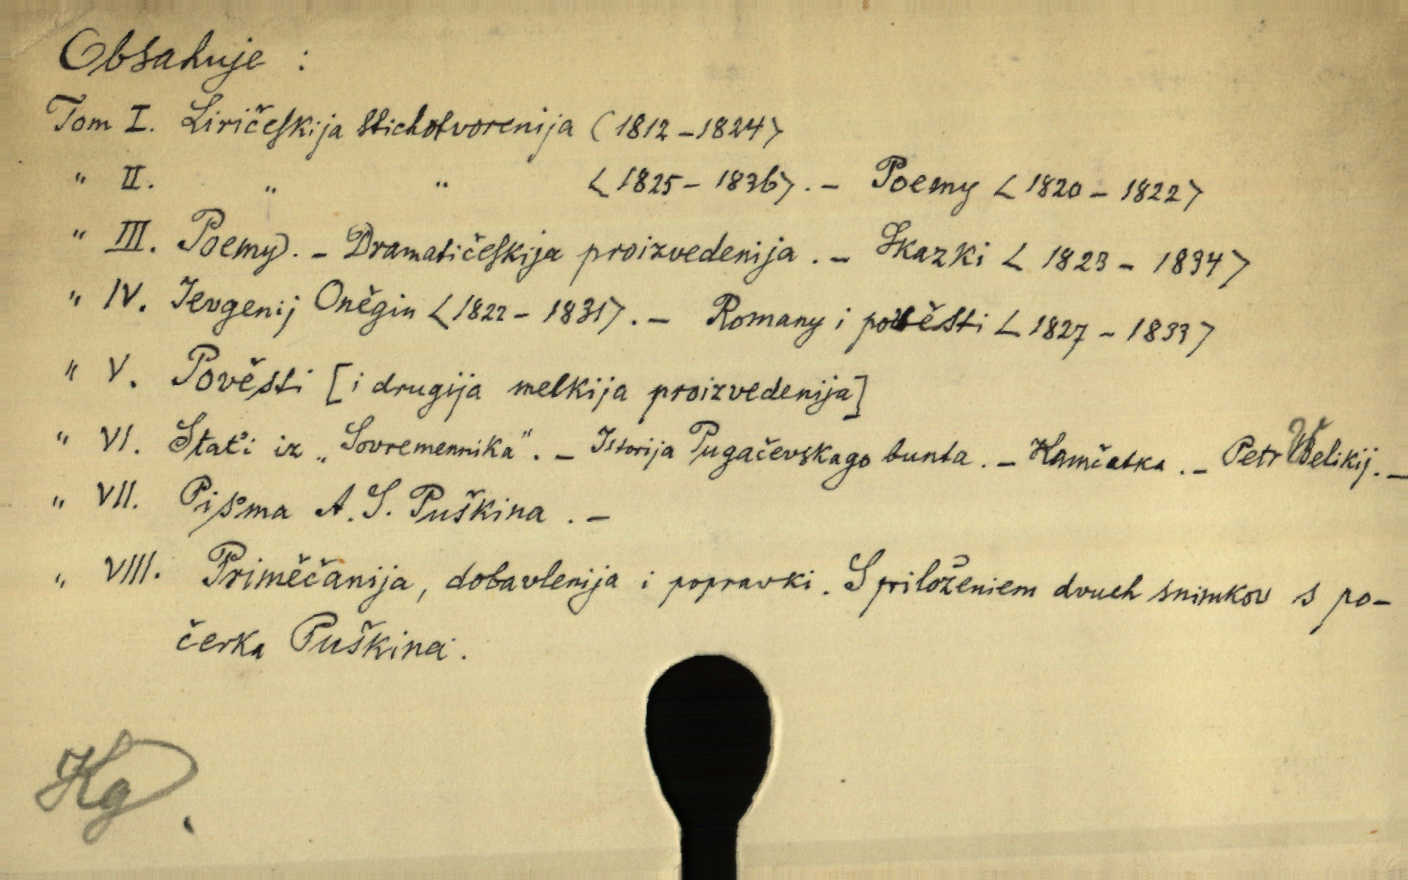 Obsahuje :
Tom I. Liričeskija stichotvorenija (1812-1824>
" II. " " <1825-1836>. - Poemy <1820-1822>
" III. Poemy. - Dramatičeskija proizvedenija. - Skazki <1823-1834>
" IV. Ievgenij Oněgin <1822-1831>. - Romany i pověsti <1827-1833>
" V. Pověsti [i drugija melkija proizvedenija]
" VI. Staťi iz „Sovremennika". - Istorija Pugačevskago bunta. - Kamčatka. - Petr Velikij. -
" VII. Pis'ma A. S. Puškina. -
" VIII. Priměčanija, dobavlenija i popravki. S priloženiem dvuch snimkov s po-
čerka Puškina.
Kg